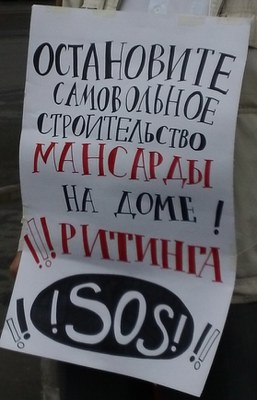 ОСТАНОВИТЕ
САМОВОЛЬНОЕ
СТРОИТЕЛЬСТВО
МАНСАРДЫ
НА ДОМЕ !
!!! РИТИНГА
!! ! SOS ! !!